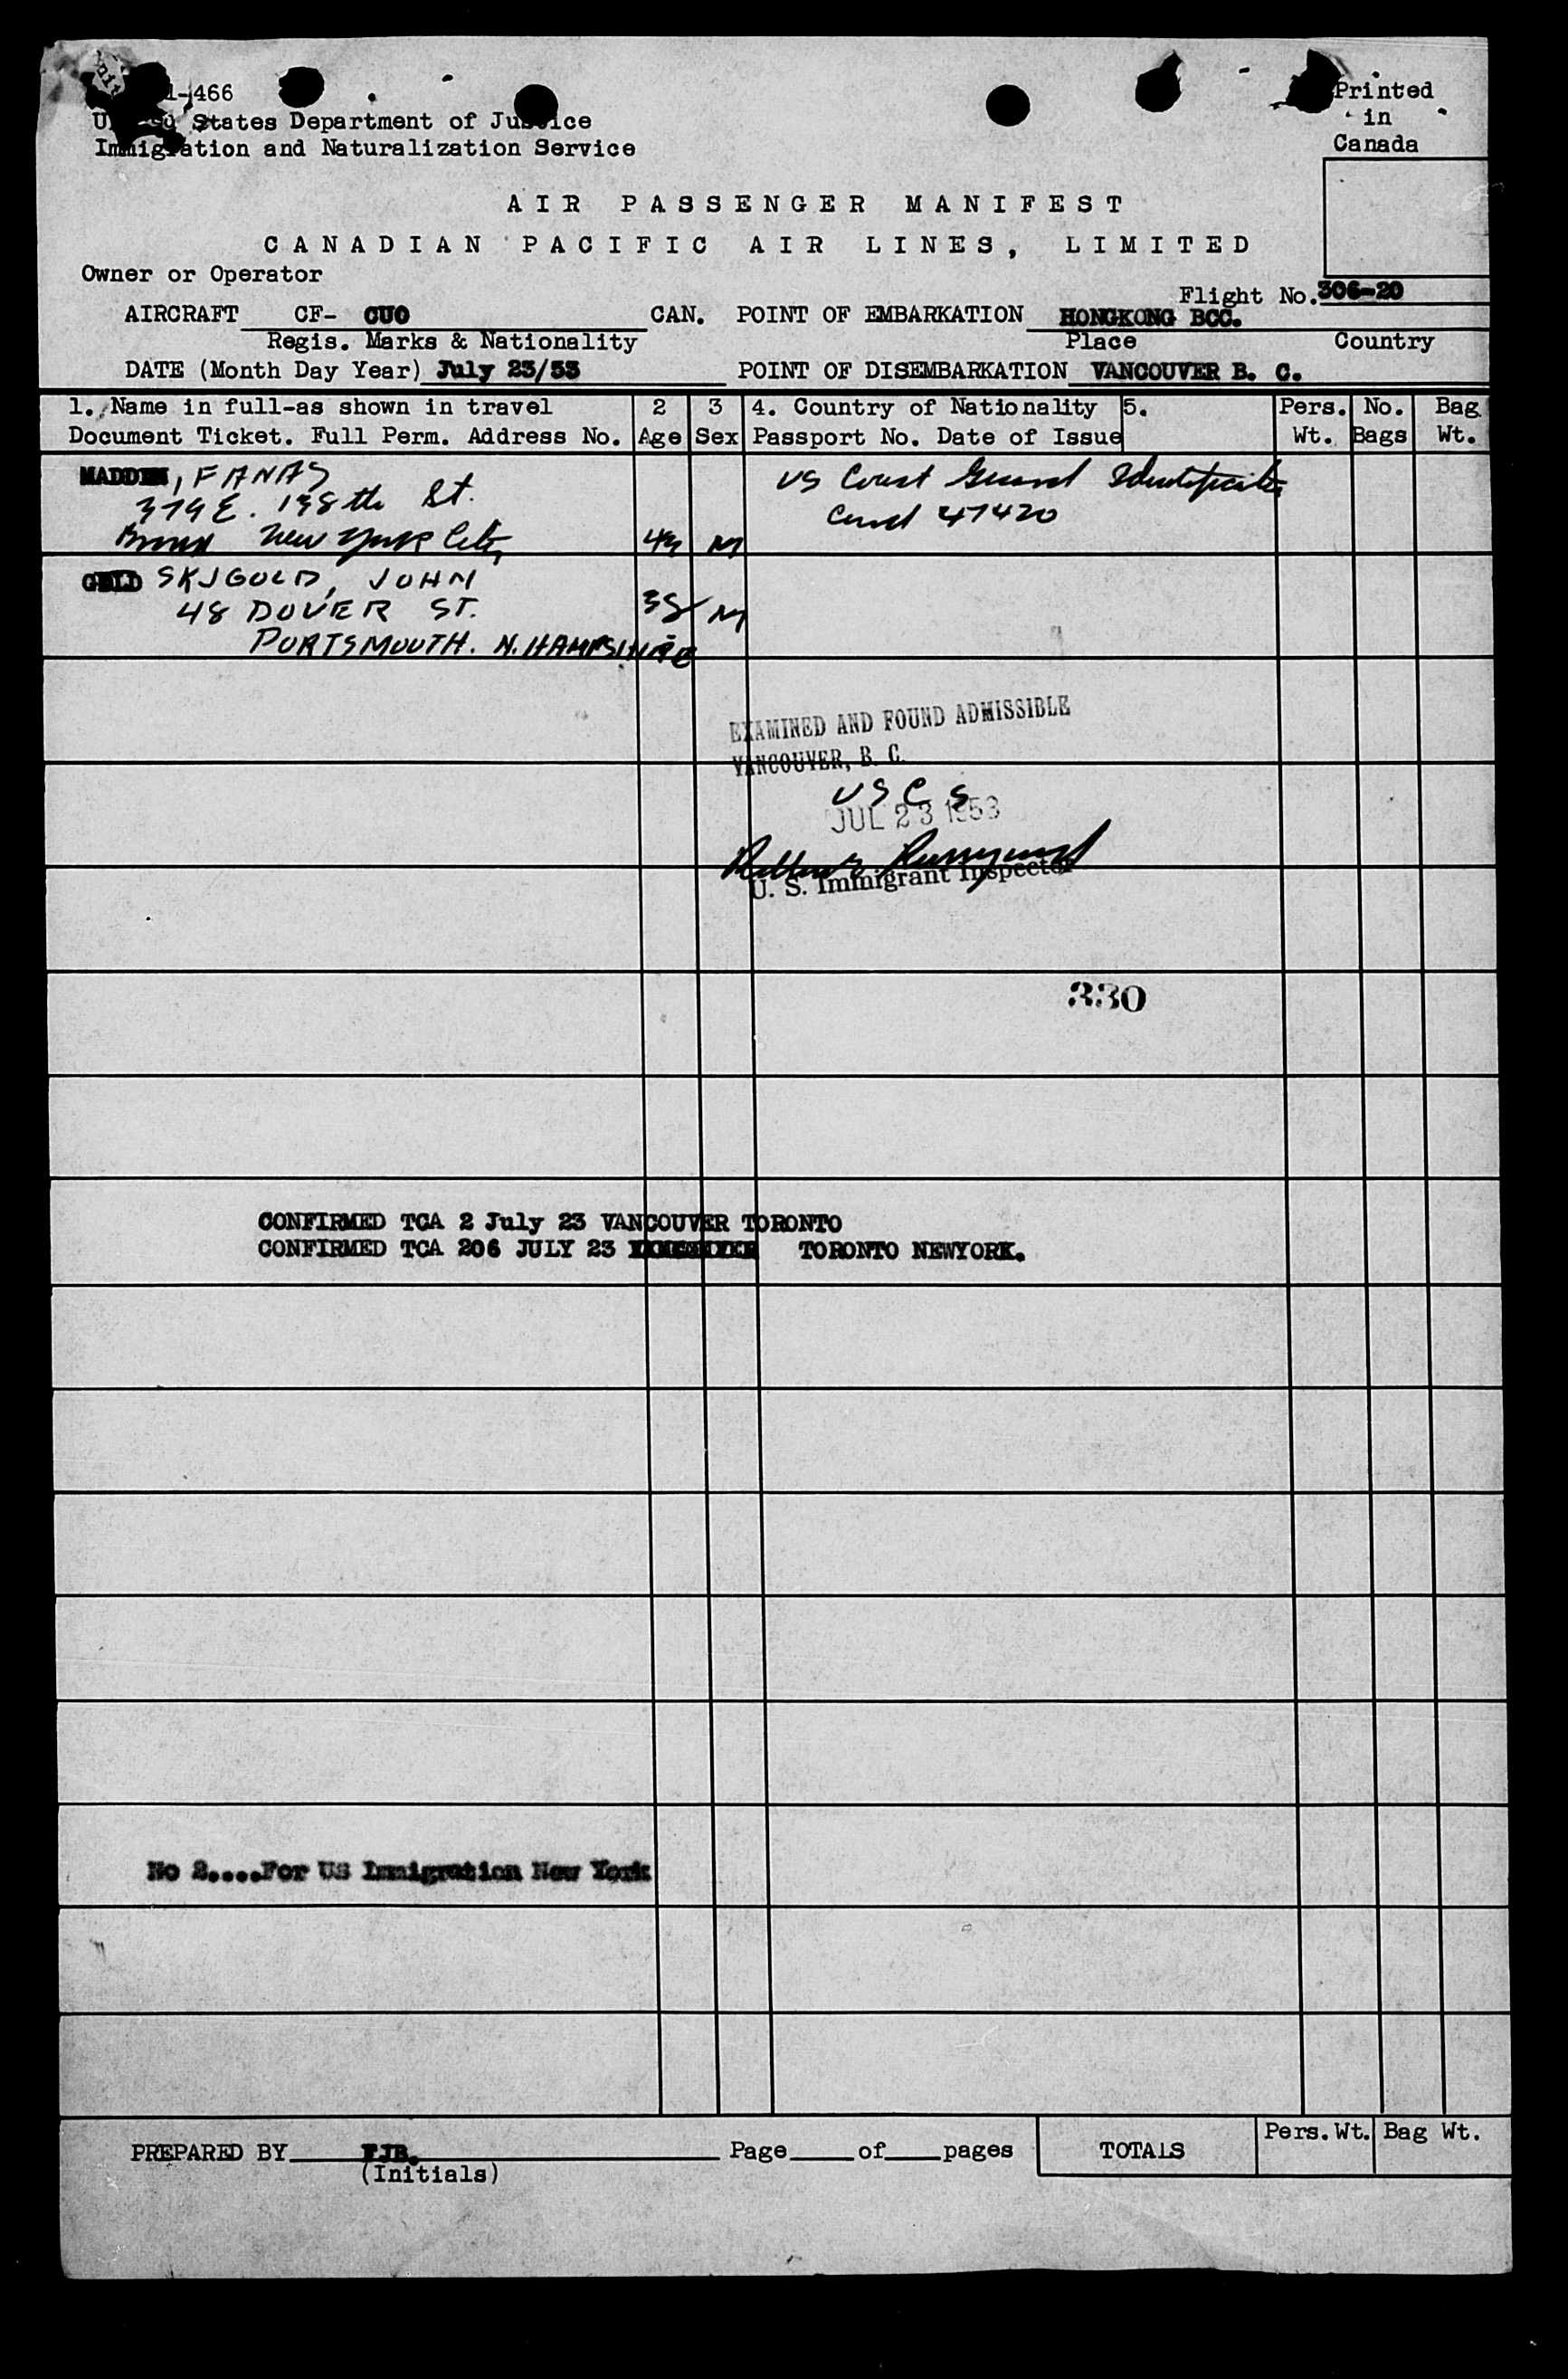 1-466
United States Department of Justice
Immigration and Naturalization Service
Printed
in
Canada
AIR PASSENGER MANIFEST
CANADIAN PACIFIC AIR LINES, LIMITED
Owner or Operator
Flight No. 306-20
AIRCRAFT CF- CUO CAN. POINT OF EMBARKATION HONGKONG BCC.
Regis. Marks & Nationality Place Country
DATE (Month Day Year) July 23/53 POINT OF DISEMBARKATION VANCOUVER B. C.
1. Name in full-as shown in travel 2 3 4. Country of Nationality 5. Pers. No. Bag
Document Ticket. Full Perm. Address No. Age Sex Passport No. Date of Issue Wt. Bags Wt.
MADDEN, FANAS US Coast Guard Identification
379 E. 138th St. Card 47420
Bronx New York City M
SKJGOLD, JOHN
48 DOVER ST. 38 M
PORTSMOUTH. N. HAMPSHIRE
EXAMINED AND FOUND ADMISSIBLE
VANCOUVER, B. C.
USCS
JUL 23 1953
U. S. Immigrant Inspector
330
CONFIRMED TCA 2 July 23 VANCOUVER TORONTO
CONFIRMED TCA 206 JULY 23 TORONTO NEWYORK.
No 2....For US Immigration New York
PREPARED BY FJB. Page of pages TOTALS Pers. Wt. Bag Wt.
(Initials)